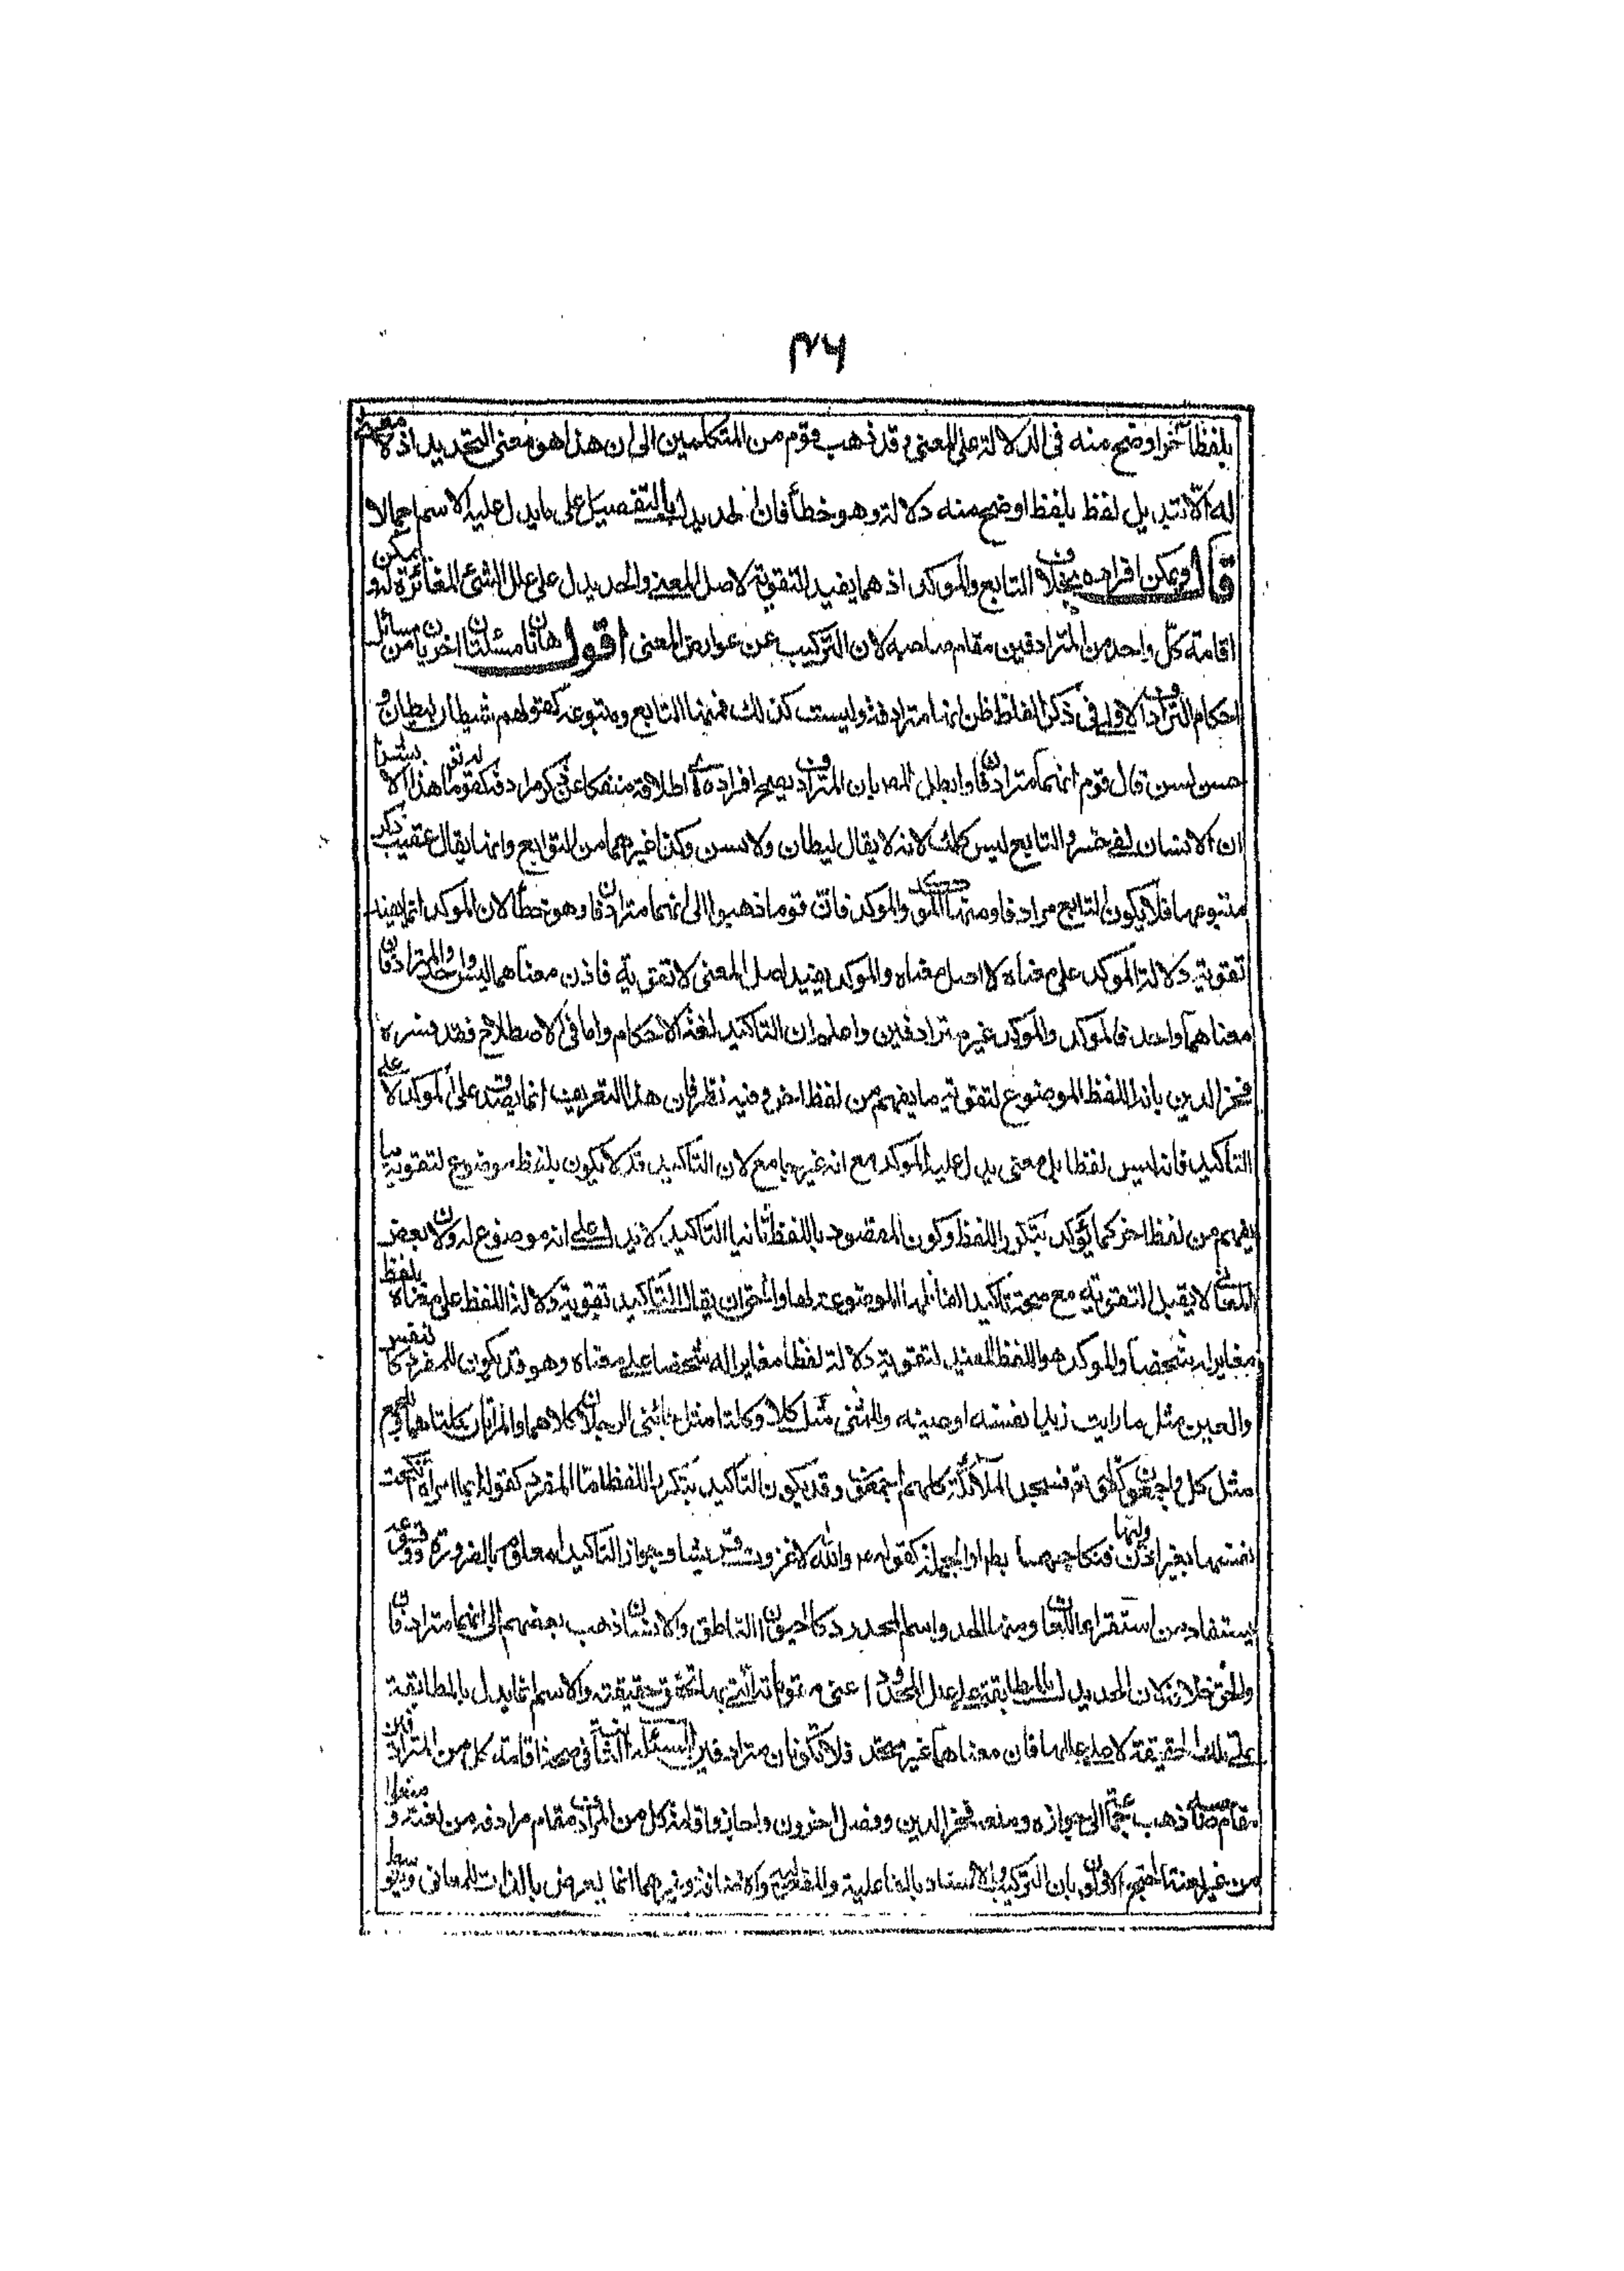 ٣٦
بلفظ آخر اوضح منه فى الدلالة على المعنى وقد ذهب قوم من المتكلمين الى ان هذا هو معنى التحديد اذ لا معنى
له الا تبديل لفظ بلفظ اوضح منه دلالة وهو خطأ فان الحد يدل بالتفصيل على ما يدل عليه الاسم اجمالا
قال ويمكن افراده بخلاف التابع والموكد اذ هما يفيد التقوية لاصل المعنى والحد يدل على علل الشئ المغائرة له ويمكن
اقامة كل واحد من المترادفين مقام صاحبه لان التركيب من عوارض المعنى اقول هاتان مسئلتان اخريان من مسائل
احكام الترادف الاولى فى ذكر الفاظ ظن انها مترادفة وليست كذلك فمنها التابع ومتبوعه كقولهم شيطان ليطان و
حسن بسن قال قوم انهما مترادفان وابطل المصر بان المترادف يصح افراده اى اطلاقه منفكا عن ذكر مرادفه كقوله تعم ما هذا الا بشرا
ان الانسان لفى خسر والتابع ليس كذلك لانه لا يقال ليطان ولا بسن وكذا غيرهما من التوابع وانما يقال عقيب ذكر
متبوعها فلا يكون التابع مرادفا ومنها الموكد والموكد فان قوما ذهبوا الى انهما مترادفان وهو خطأ لان الموكد انما يفيد
تقوية دلالة الموكد على معناه لا اصل معناه والموكد يفيد اصل المعنى لا تقويته فاذن معناهما ليس واحد والمترادفان
معناهما واحد فالموكد والموكد غير مترادفين واصله ان التاكيد لغة الاحكام واما فى الاصطلاح فقد فسره
فخر الدين بانه اللفظ الموضوع لتقوية ما يفهم من لفظ اخر وفيه نظر فان هذا التعريف انما يصدق على الموكد لا على
التاكيد فانه ليس لفظا بل معنى يدل عليه الموكد مع انه غير جامع لان التاكيد قد لا يكون بلفظ موضوع لتقوية ما
يفهم من لفظ اخر كما يؤكد بتكرير اللفظ وكون المقصود باللفظ ثانيا التاكيد لا يدل على انه موضوع له ولان بعض
المعانى لا يقبل التقوية مع صحة تاكيد الفاظها الموضوعة لها والحق ان يقال التاكيد تقوية دلالة اللفظ على معناه بلفظ
مغاير له شخصا والموكد هو اللفظ المفيد لتقوية دلالة لفظ مغاير له شخصا على معناه وهو قد يكون للمفرد كالنفس
والعين مثل ما رايت زيدا نفسه او عينه والمثنى مثل كلا وكلتا مثل جائنى الرجلان كلاهما والمرأتان كلتاهما والجمع
مثل كل واجمعون كقوله تعم فسجد الملائكة كلهم اجمعون وقد يكون التاكيد بتكرير اللفظ اما المفرد كقوله ايما امراة نكحت
نفسها بغير اذن وليها فنكاحها باطل او الجملة كقوله عم والله لاغزون قريشا وجواز التاكيد معلوم بالضرورة ووقوعه
يستفاد من استقراء اللغات ومنها الحد واسم المحدود كالحيوان الناطق والانسان ذهب بعضهم الى انهما مترادفان
والحق خلافه لان الحد يدل بالمطابقة على علل المحدود اعنى مقوماته التى بها تحقق حقيقته والاسم انما يدل بالمطابقة
على تلك الحقيقة لا على عللها فان معناهما غير متحد فلا تكونان مترادفين المسئلة الثانية فى صحة اقامة كل من المترادفين
مقام صاحبه ذهب الى جوازه ومنعه فخر الدين وفصل اخرون واجازوا اقامة كل من المترادف مقام مرادفه من لغته و منعوا
من غير لغته احتج الاولون بان التركيب كالاسناد بالفاعلية والاضافة وغيرهما انما يعرض بالذات للمعانى وبتوسط